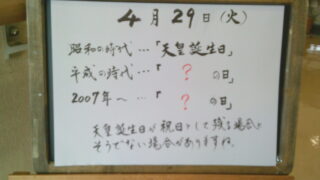 4月29日(火)
昭和の時代…「天皇誕生日」
平成の時代…「?の日」
2007年〜…「?の日」
天皇誕生日が祝日として残る場合と
そうでない場合がありますね。